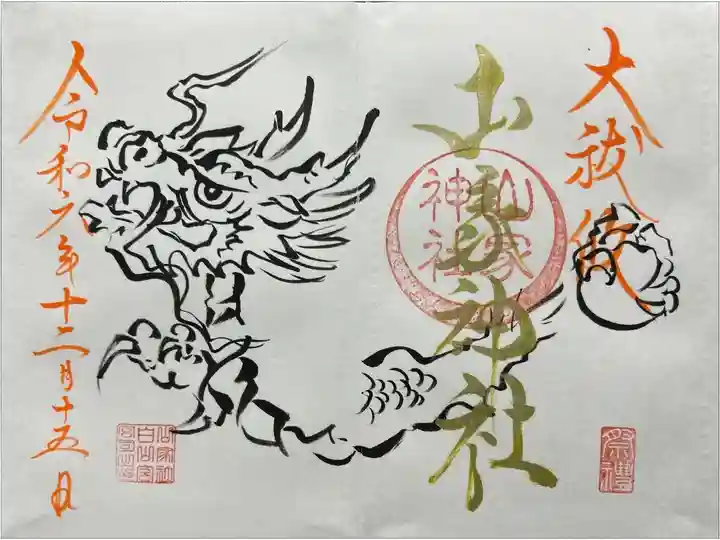 大祓
祭禮
山家神社
山家
神社
令和六年十二月十五日
山家社
白山宮